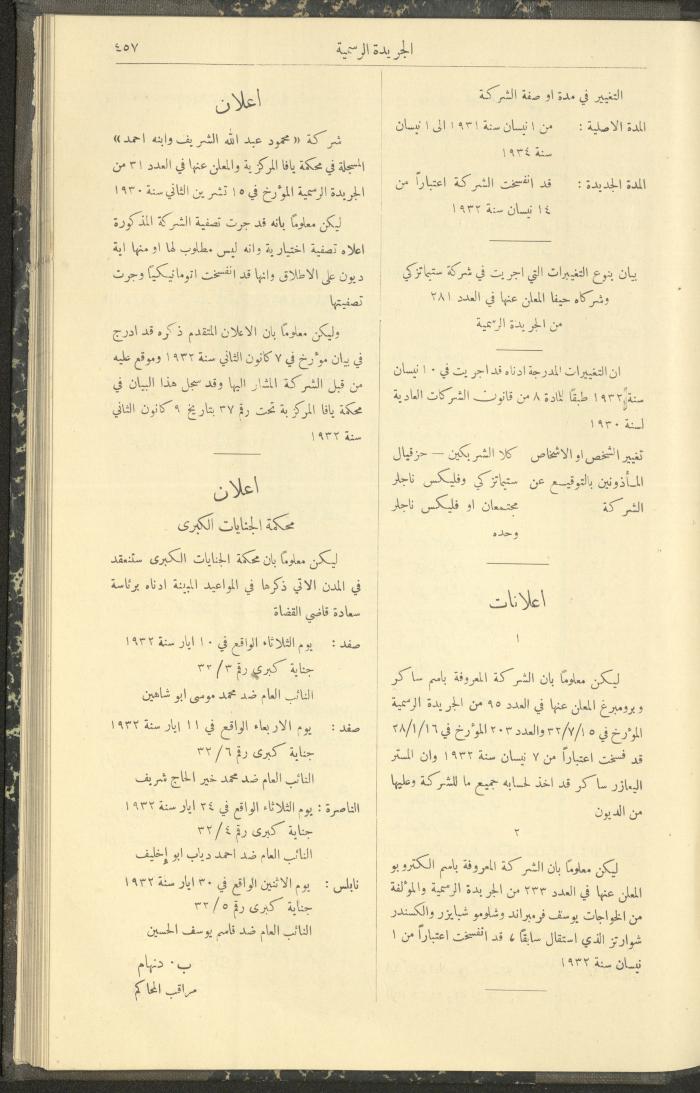 الجريدة الرسمية
٤٥٧
التغيير في مدة او صفة الشركة
المدة الاصلية : من ١ نيسان سنة ١٩٣١ الى ١ نيسان
سنة ١٩٣٤
المدة الجديدة : قد انفسخت الشركة اعتباراً من
١٤ نيسان سنة ١٩٣٢
بيان بنوع التغييرات التي اجريت في شركة ستيماتزكي
وشركاه حيفا المعلن عنها في العدد ٢٨١
من الجريدة الرسمية
ان التغييرات المدرجة ادناه قد اجريت في ١٠ نيسان
سنة ١٩٣٢ طبقاً للمادة ٨ من قانون الشركات العادية
لسنة ١٩٣٠
تغيير الشخص او الاشخاص كلا الشريكين — حزقيال
المأذونين بالتوقيع عن ستيماتزكي وفليكس ناجلر
الشركة مجتمعان او فليكس ناجلر
وحده
اعلانات
١
ليكن معلوماً بان الشركة المعروفة باسم ساكر
وبرومبرغ المعلن عنها في العدد ٩٥ من الجريدة الرسمية
المؤرخ في ٣٢/٧/١٥ والعدد ٢٠٣ المؤرخ في ٢٨/١/١٦
قد فسخت اعتباراً من ٧ نيسان سنة ١٩٣٢ وان المستر
اليعازر ساكر قد اخذ لحسابه جميع ما للشركة وعليها
من الديون
٢
ليكن معلوماً بان الشركة المعروفة باسم الكتروبو
المعلن عنها في العدد ٢٣٣ من الجريدة الرسمية والمؤلفة
من الخواجات يوسف فرمبراند وشلومو شبايزر والكسندر
شوارتز الذي استقال سابقاً ، قد انفسخت اعتباراً من ١
نيسان سنة ١٩٣٢
اعلان
شركة « محمود عبد الله الشريف وابنه احمد »
المسجلة في محكمة يافا المركزية والمعلن عنها في العدد ٣١ من
الجريدة الرسمية المؤرخ في ١٥ تشرين الثاني سنة ١٩٣٠
ليكن معلوماً بانه قد جرت تصفية الشركة المذكورة
اعلاه تصفية اختيارية وانه ليس مطلوب لها او منها اية
ديون على الاطلاق وانها قد انفسخت اتوماتيكياً وجرت
تصفيتها
وليكن معلوماً بان الاعلان المتقدم ذكره قد ادرج
في بيان مؤرخ في ٧ كانون الثاني سنة ١٩٣٢ وموقع عليه
من قبل الشركة المشار اليها وقد سجل هذا البيان في
محكمة يافا المركزية تحت رقم ٣٧ بتاريخ ٩ كانون الثاني
سنة ١٩٣٢
اعلان
محكمة الجنايات الكبرى
ليكن معلوماً بان محكمة الجنايات الكبرى ستنعقد
في المدن الاتي ذكرها في المواعيد المبينة ادناه برئاسة
سعادة قاضي القضاة
صفد : يوم الثلاثاء الواقع في ١٠ ايار سنة ١٩٣٢
جناية كبرى رقم ٣٢/٣
النائب العام ضد محمد موسى ابو شاهين
صفد : يوم الاربعاء الواقع في ١١ ايار سنة ١٩٣٢
جناية كبرى رقم ٣٢/٦
النائب العام ضد محمد خير الحاج شريف
الناصرة : يوم الثلاثاء الواقع في ٢٤ ايار سنة ١٩٣٢
جناية كبرى رقم ٣٢/٤
النائب العام ضد احمد دياب ابو إخليف
نابلس : يوم الاثنين الواقع في ٣٠ ايار سنة ١٩٣٢
جناية كبرى رقم ٣٢/٥
النائب العام ضد قاسم يوسف الحسين
ب. دنهام
مراقب المحاكم